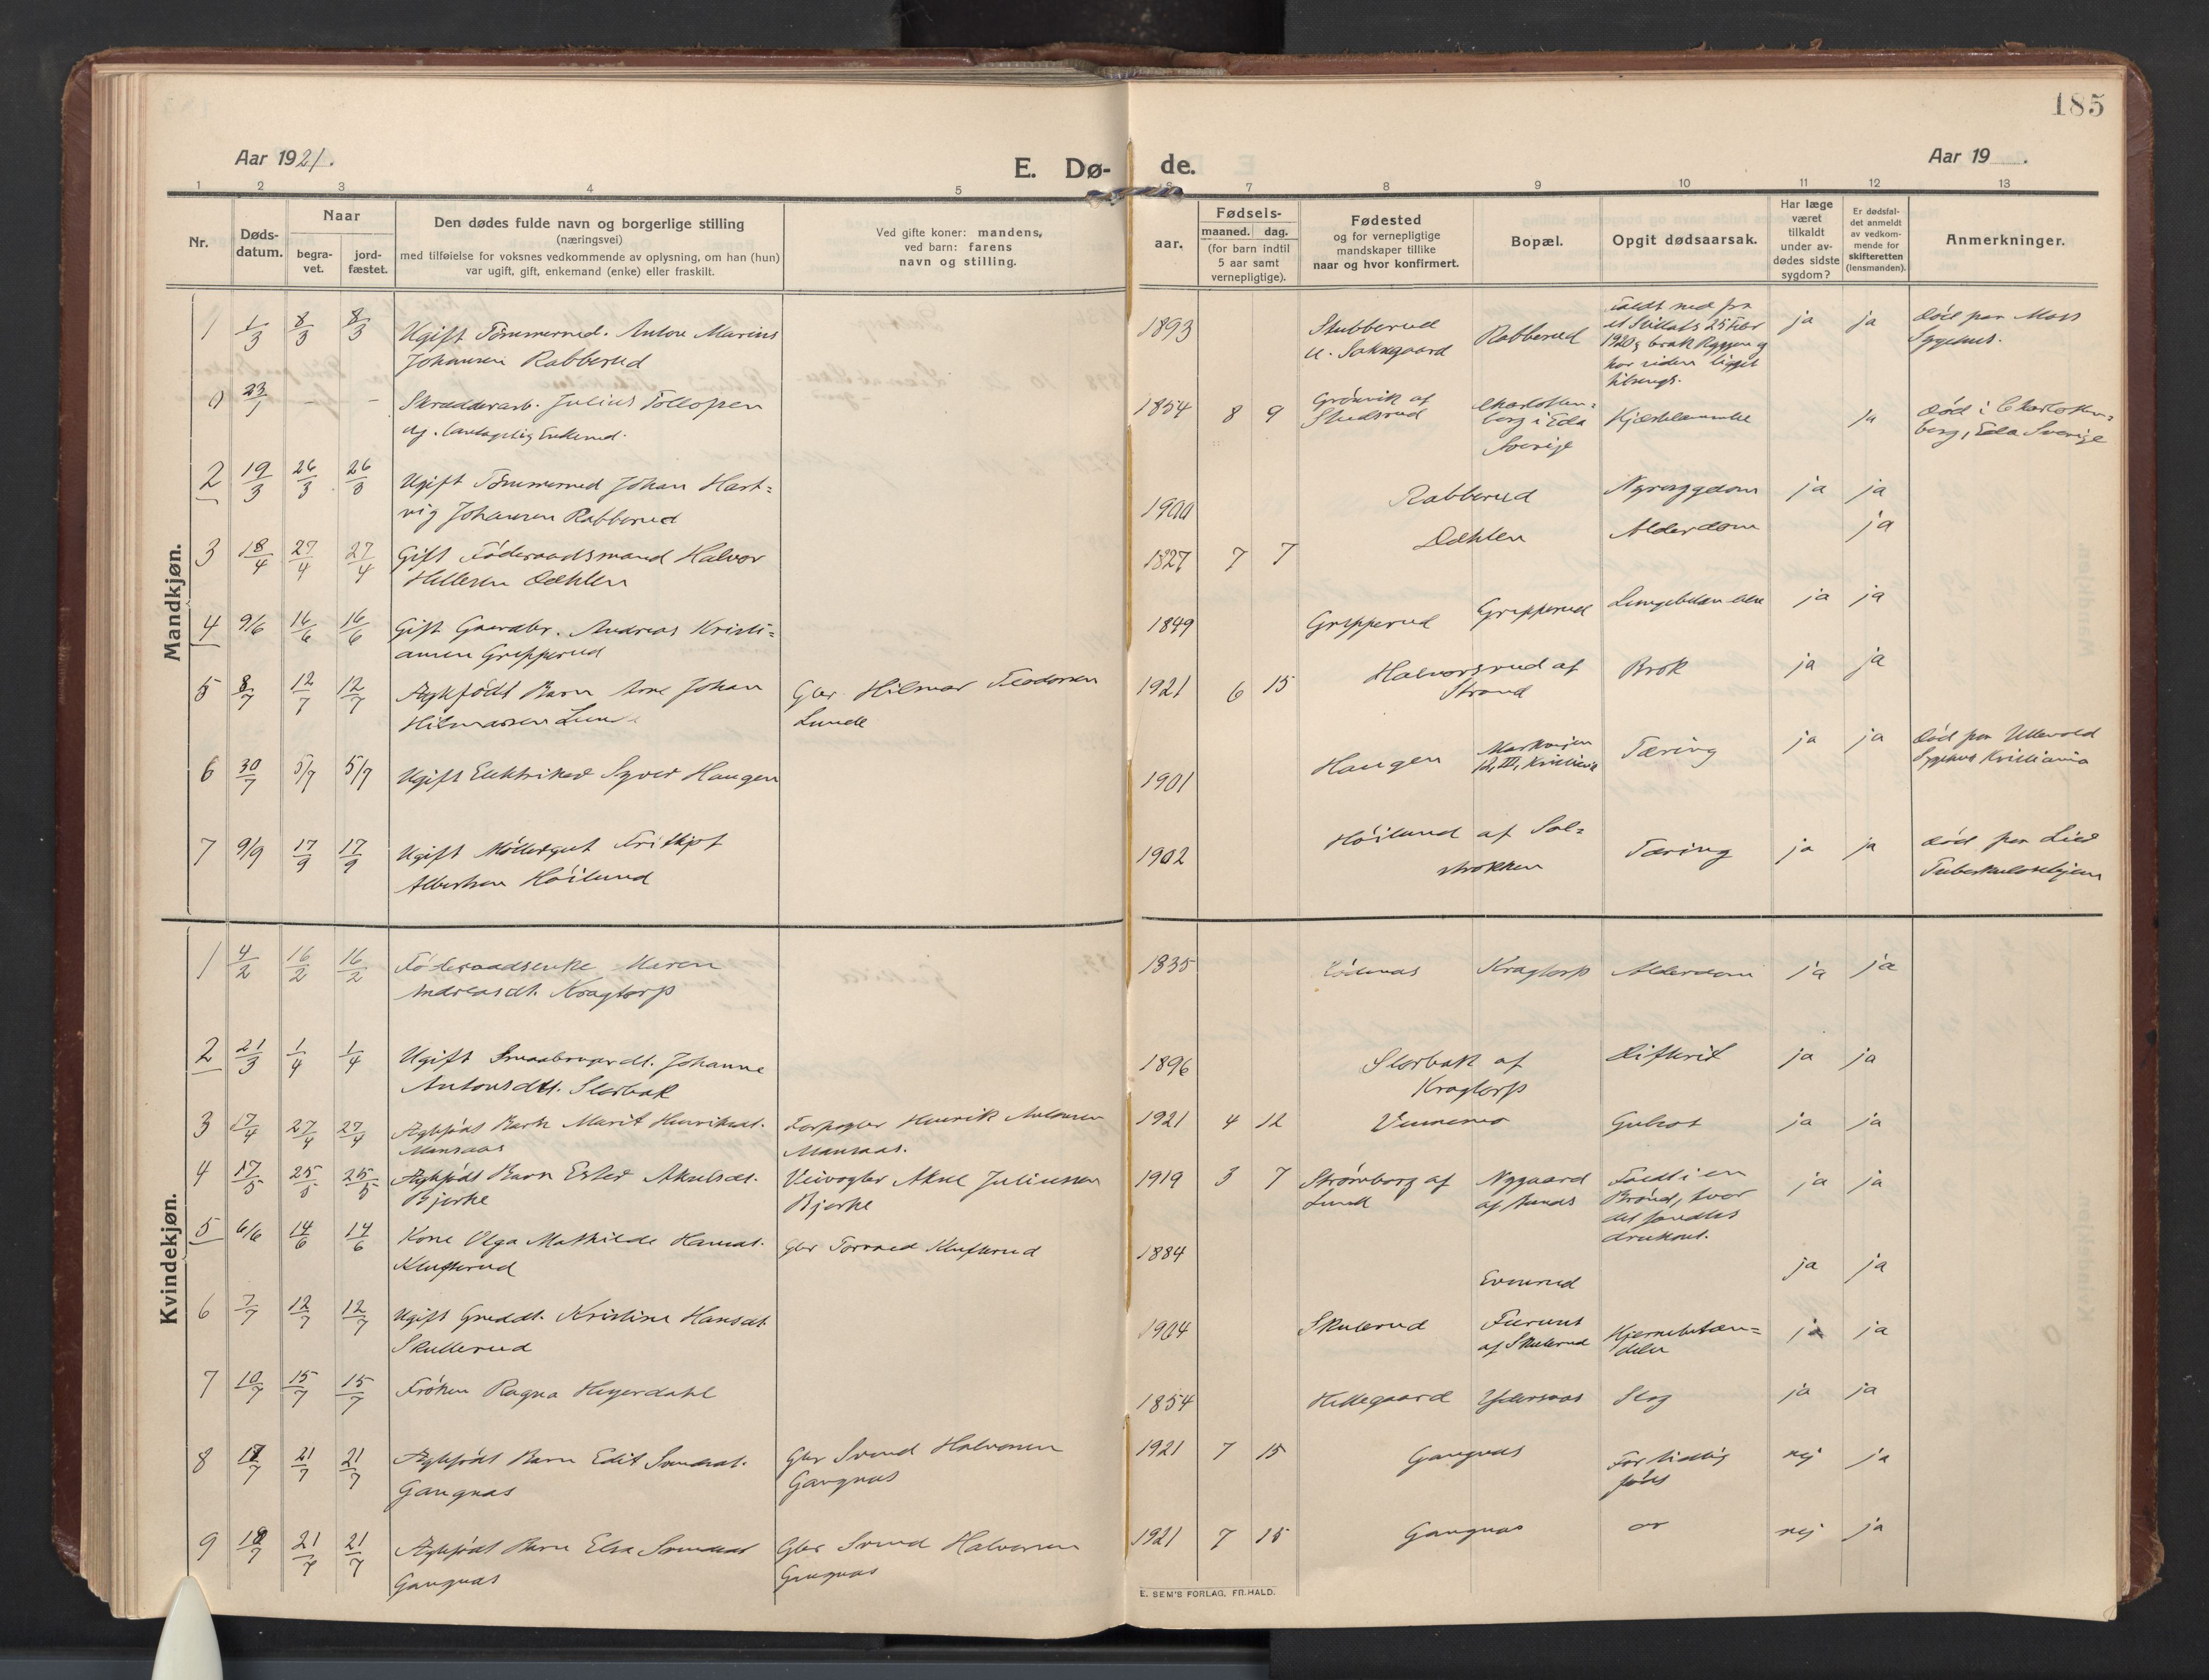 185
Aar 1921.
E. Dø-
de.
Aar 19 .
1 2 3 4 5 6 7 8 9 10 11 12 13
Nr.
Døds-
datum.
Naar
begra-
vet.
jord-
fæstet.
Den dødes fulde navn og borgerlige stilling
(næringsvei)
med tilføielse for voksnes vedkommende av oplysning, om han (hun)
var ugift, gift, enkemand (enke) eller fraskilt.
Ved gifte koner: mandens,
ved barn: farens
navn og stilling.
aar.
Fødsels-
maaned. dag.
(for barn indtil
5 aar samt
vernepligtige).
Fødested
og for vernepligtige
mandskaper tillike
naar og hvor konfirmert.
Bopæl.
Opgit dødsaarsak.
Har læge
været
tilkaldt
under av-
dødes sidste
sygdom?
Er dødsfal-
det anmeldt
av vedkom-
mende for
skifteretten
(lensmanden).
Anmerkninger.
Mandkjøn.
1 1/3 8/3 8/3 Ugift Tømmermd. Anton Marius
Johansen Rabberud
1893 Skubberud Rabberud
ja ja Død paa Moss
Sygehus.
0 23/1 - - Skrædderarb. Julius Tollofsen
1854 8 9 Grønvik af
Sverige
ja Død i Charlotten=
berg, Eda Sverige
2 19/3 26/3 26/3 Ugift Tømmermd Johan Hart=
vig Johansen Rabberud
1900 Rabberud Nyresygdom ja ja
3 18/4 27/4 27/4 Gift Føderaadsmand Halvor
Hellesen Dæhlen
1827 7 7 Dæhlen Alderdom ja
4 9/6 16/6 16/6 Gift Gaardbr. Andreas Kristi=
ansen Gripperud
1849 Gripperud Gripperud ja ja
5 8/7 12/7 12/7 Ægtefødt Barn Arne Johan
Hilmarsen Lunde
Gbr. Hilmar
Lunde
1921 6 15 Halvorsrud af
Strand
Brok ja ja
6 30/7 5/7 5/7 Ugift Elektriker Syver Haugen
1901 Haugen Tæring ja ja
Død paa Ullevold
Sygehus Kristiania
7 9/9 17/9 17/9 Ugift Møllergut Fritjof
Albertsen Høilund
1902 Høilund af Sol=
strokken
Tæring ja ja
Død paa Lier
Tuberkulosehjem
Kvindekjøn.
1 4/2 16/2 16/2 Føderaadsenke Maren
Andreasdt. Kragtorp
1835 Rødenæs Kragtorp Alderdom ja ja
2 21/3 1/4 1/4 Ugift Smaabrugerdt. Johanne
Antonsdtt. Slorbak
1896 Slorbak af
Kragtorp
Difterit ja ja
3 17/4 27/4 27/4 Ægtefødt Barn Marit Henriksdt.
Mansaas
Forpagter Henrik Antonsen
Mansaas.
1921 4 12 Gulsot ja ja
4 17/5 25/5 25/5 Ægtefødt Barn Ester Akselsdt.
Bjerke
Veivogter Aksel Juliussen
Bjerke
1919 3 7 Strømborg af
Lund
Nygaard
Faldt i en
Brønd, hvor
det fandtes
druknet.
ja ja
5 6/6 14/6 14/6 Kone Olga Mathilde Hansdt.
Klufterud
Gbr Tormod Klufterud
1884 ja ja
6 7/7 12/7 12/7 Ugift Grddt. Kristine Hansdt.
Skullerud
1904 Skulerud
af Skulerud
Hjernebetæn=
delse
ja ja
7 10/7 15/7 15/7 Frøken Ragna Heyerdahl
1854 Hellegaard Ydersnes Slag ja ja
8 18/7 21/7 21/7 Ægtefødt Barn Edit Svendsdt.
Gangnæs
Gbr Svend Halvorsen
Gangnæs
1921 7 15 Gangnæs For tidlig
født
nej ja
9 18/7 21/7 21/7 Ægtefødt Barn Elsa Svendsdt
Gangnæs
Gbr Svend Halvorsen
Gangnæs
1921 7 15 Gangnæs nej ja
E. SEM'S FORLAG, FR.HALD.